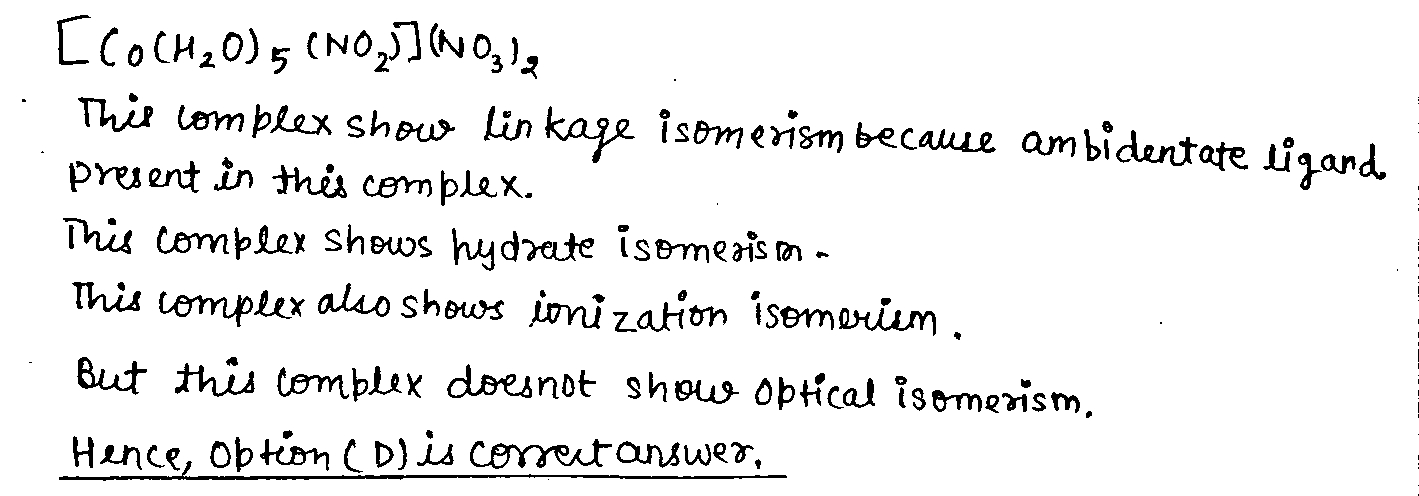 [Co(H₂O)₅(NO₂)](NO₃)₂
This complex show linkage isomerism because ambidentate ligand
present in this complex.
This complex shows hydrate isomerism.
This complex also shows ionization isomerism.
But this complex doesnot show optical isomerism.
Hence, option (D) is correct answer.